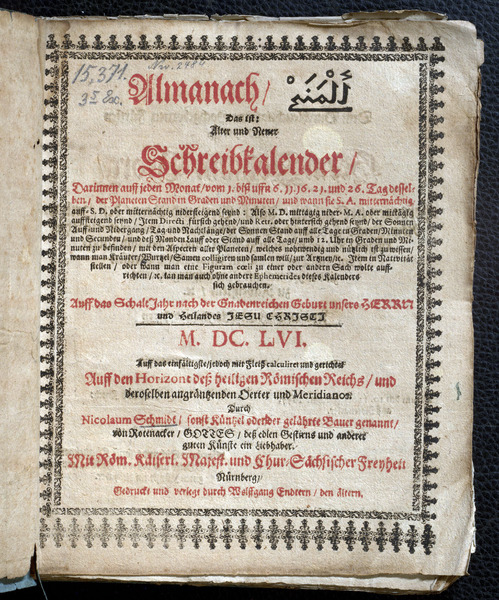 15,371.
3 Ex.
Almanach/ أَلْمَنَحْ
Das ist:
Alter und Neuer
Schreibkalender/
Darinnen auff jeden Monat/vom 1. biß uffn 6. 11. 16. 21. und 26. Tag dessel-
ben/ der Planeten Stand in Graden und Minuten/ und wann sie S. A. mitternächtig
auf- S. D. oder mitternächtig nidersteigend seynd: Also M. D. mittägig nider- M. A. oder mittägig
auffsteigend seynd/ Item Directi fürsich gehend/ und Retr. oder hintersich gehend seynd/ der Sonnen
Auff und Nidergang/ Tag und Nachtlänge/ der Sonnen Stand auff alle Tage/ in Graden/ Minuten
und Secunden/ und deß Monden Lauff oder Stand auff alle Tage/ und 12. Uhr in Graden und Mi-
nuten zu befinden/ mit den Aspecten aller Planeten/ welches nohtwendig und nützlich ist zu wissen/
wann man Kräuter/ Wurtzel/ Samen colligiren und samlen will/ zur Artzney/ ꝛc. Item in Nativität
stellen/ oder wann man eine Figuram cœli zu einer oder andern Sach wolte auff-
richten/ ꝛc. kan man auch ohne andere Ephemerides dieses Kalenders
sich gebrauchen.
Auff das Schalt Jahr nach der Gnadenreichen Geburt unsers HERRN
und Heilandes JESU CHRISTI
M. DC. LVI.
Auff das einfältigste/ jedoch mit Fleiß calculiret und gerichtet
Auff den Horizont deß heiligen Römischen Reichs/ und
deroselben angräntzenden Oerter und Meridianos.
Durch
Nicolaum Schmidt/ sonst Küntzel oder der gelährte Bauer genannt/
von Rotenacker/ GOTTES/ deß edlen Gestirns und anderer
guten Künste ein Liebhaber.
Mit Röm. Käiserl. Majest. und Chur-Sächsischer Freyheit
Nürnberg/
Gedruckt und verlegt durch Wolffgang Endtern/ den ältern.